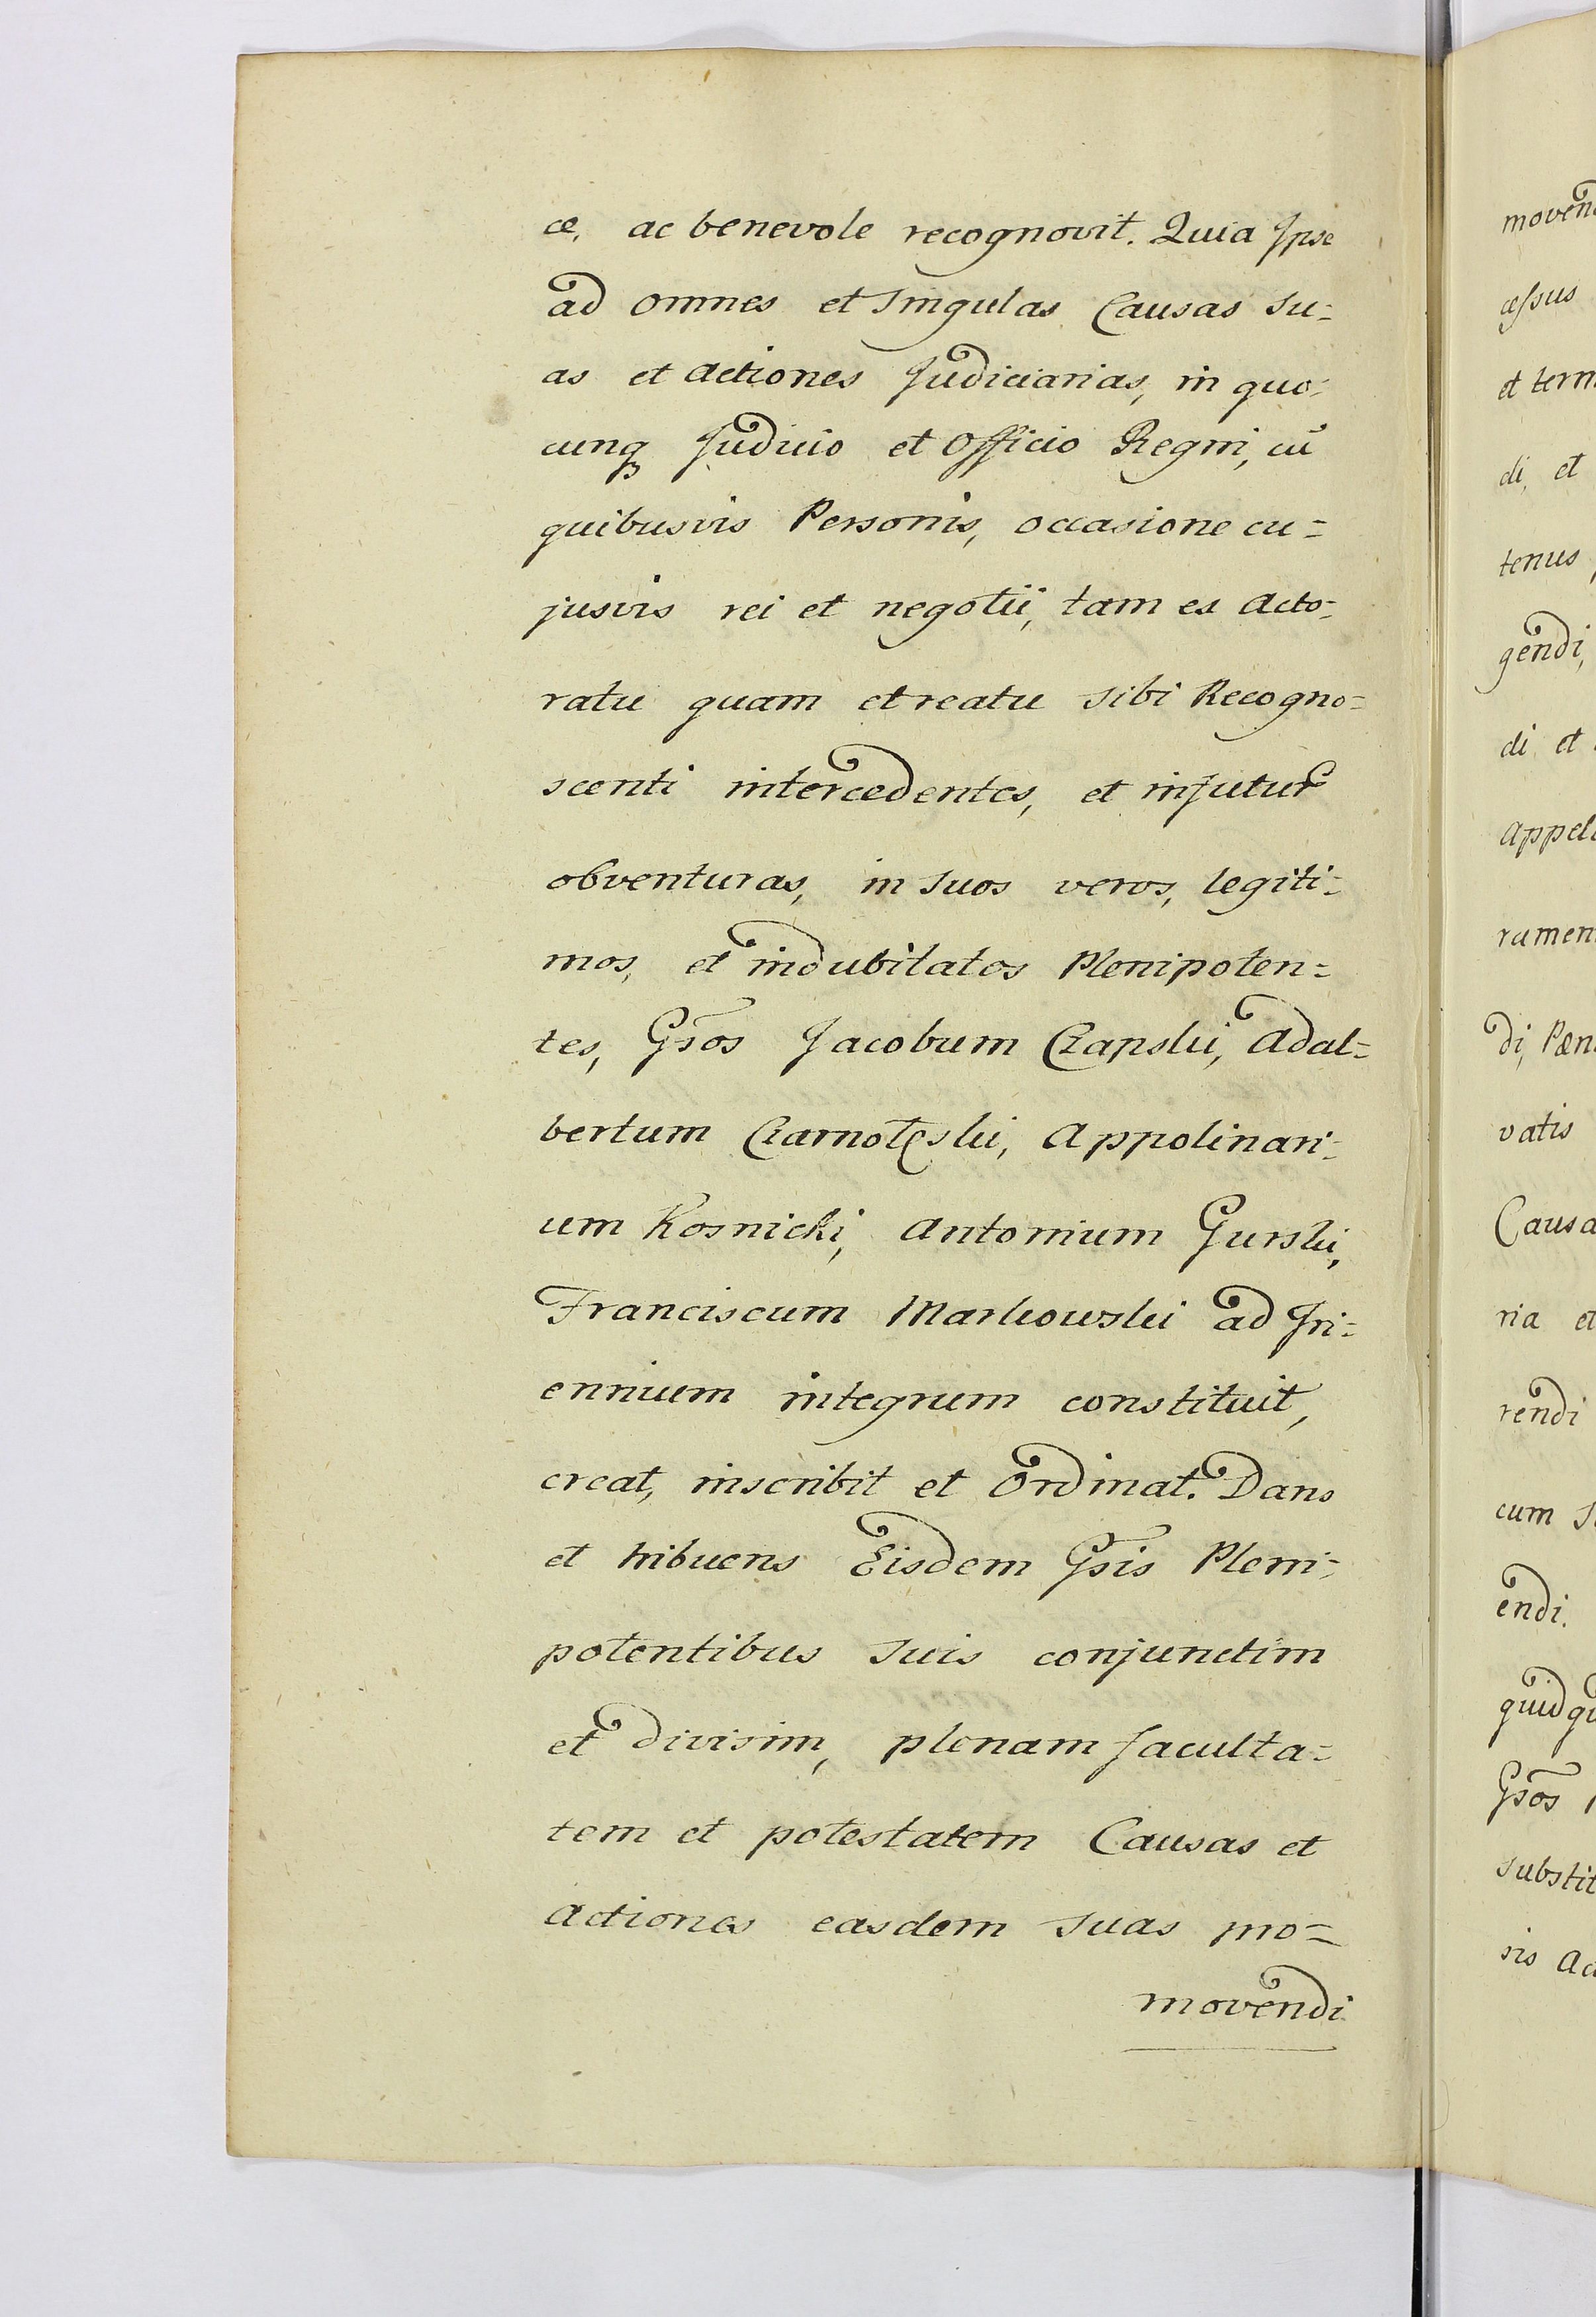 ce, ac benevole recognovit. Quia Ipse
ad omnes et Singulas Causas Su=
as et Actiones Judiciarias, in quo=
cunqꝫ Judicio et Officio Regni, cū
quibusvis Personis, occasione cu=
jusvis rei et negotii, tam ex Acto=
ratu quam et reatu sibi Recogno=
scenti intercedentes, et in futur
obventuras, in suos veros, legiti=
mos, et indubitatos Plenipoten=
tes, Gsos Jacobum Czapski, Adal=
bertum, Appolinari=
um Kosnicki, Antonium Gurski,
Franciscum Markowski ad Tri=
ennium integrum constituit,
creat, inscribit et Ordinat. Dans
et tribuens Eisdem Gsis Pleni=
potentibus Suis conjunctim
et divisim, plenam faculta=
tem et potestatem Causas et
Actiones easdem Suas mo=
movendi
moven
cessus
et term
di, et
tenus
gendi,
di et
Appel
ramen
di, Pæn
vatis
Causa
ria et
rendi
cum
endi.
quidqu
Gsos
substit
sis Ac